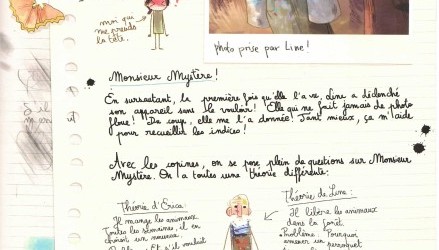 moi qui
me prends
la tête.
photo prise par Line !
Monsieur Mystère !
En sursautant, la première fois qu'elle l'a vu, Line a déclenché
son appareil sans le vouloir ! Elle qui ne fait jamais de photo
floue ! Du coup, elle me l'a donnée ! Tant mieux, ça m'aide
pour recueillir les indices !
Avec les copines, on se pose plein de questions sur Monsieur
Mystère. On a toutes une théorie différente :
Théorie d'Erica :
Il mange les animaux.
Toutes les semaines, il en
choisit un nouveau.
Théorie de Line :
Il libère les animaux
dans la forêt.
Problème : Pourquoi
amener un perroquet